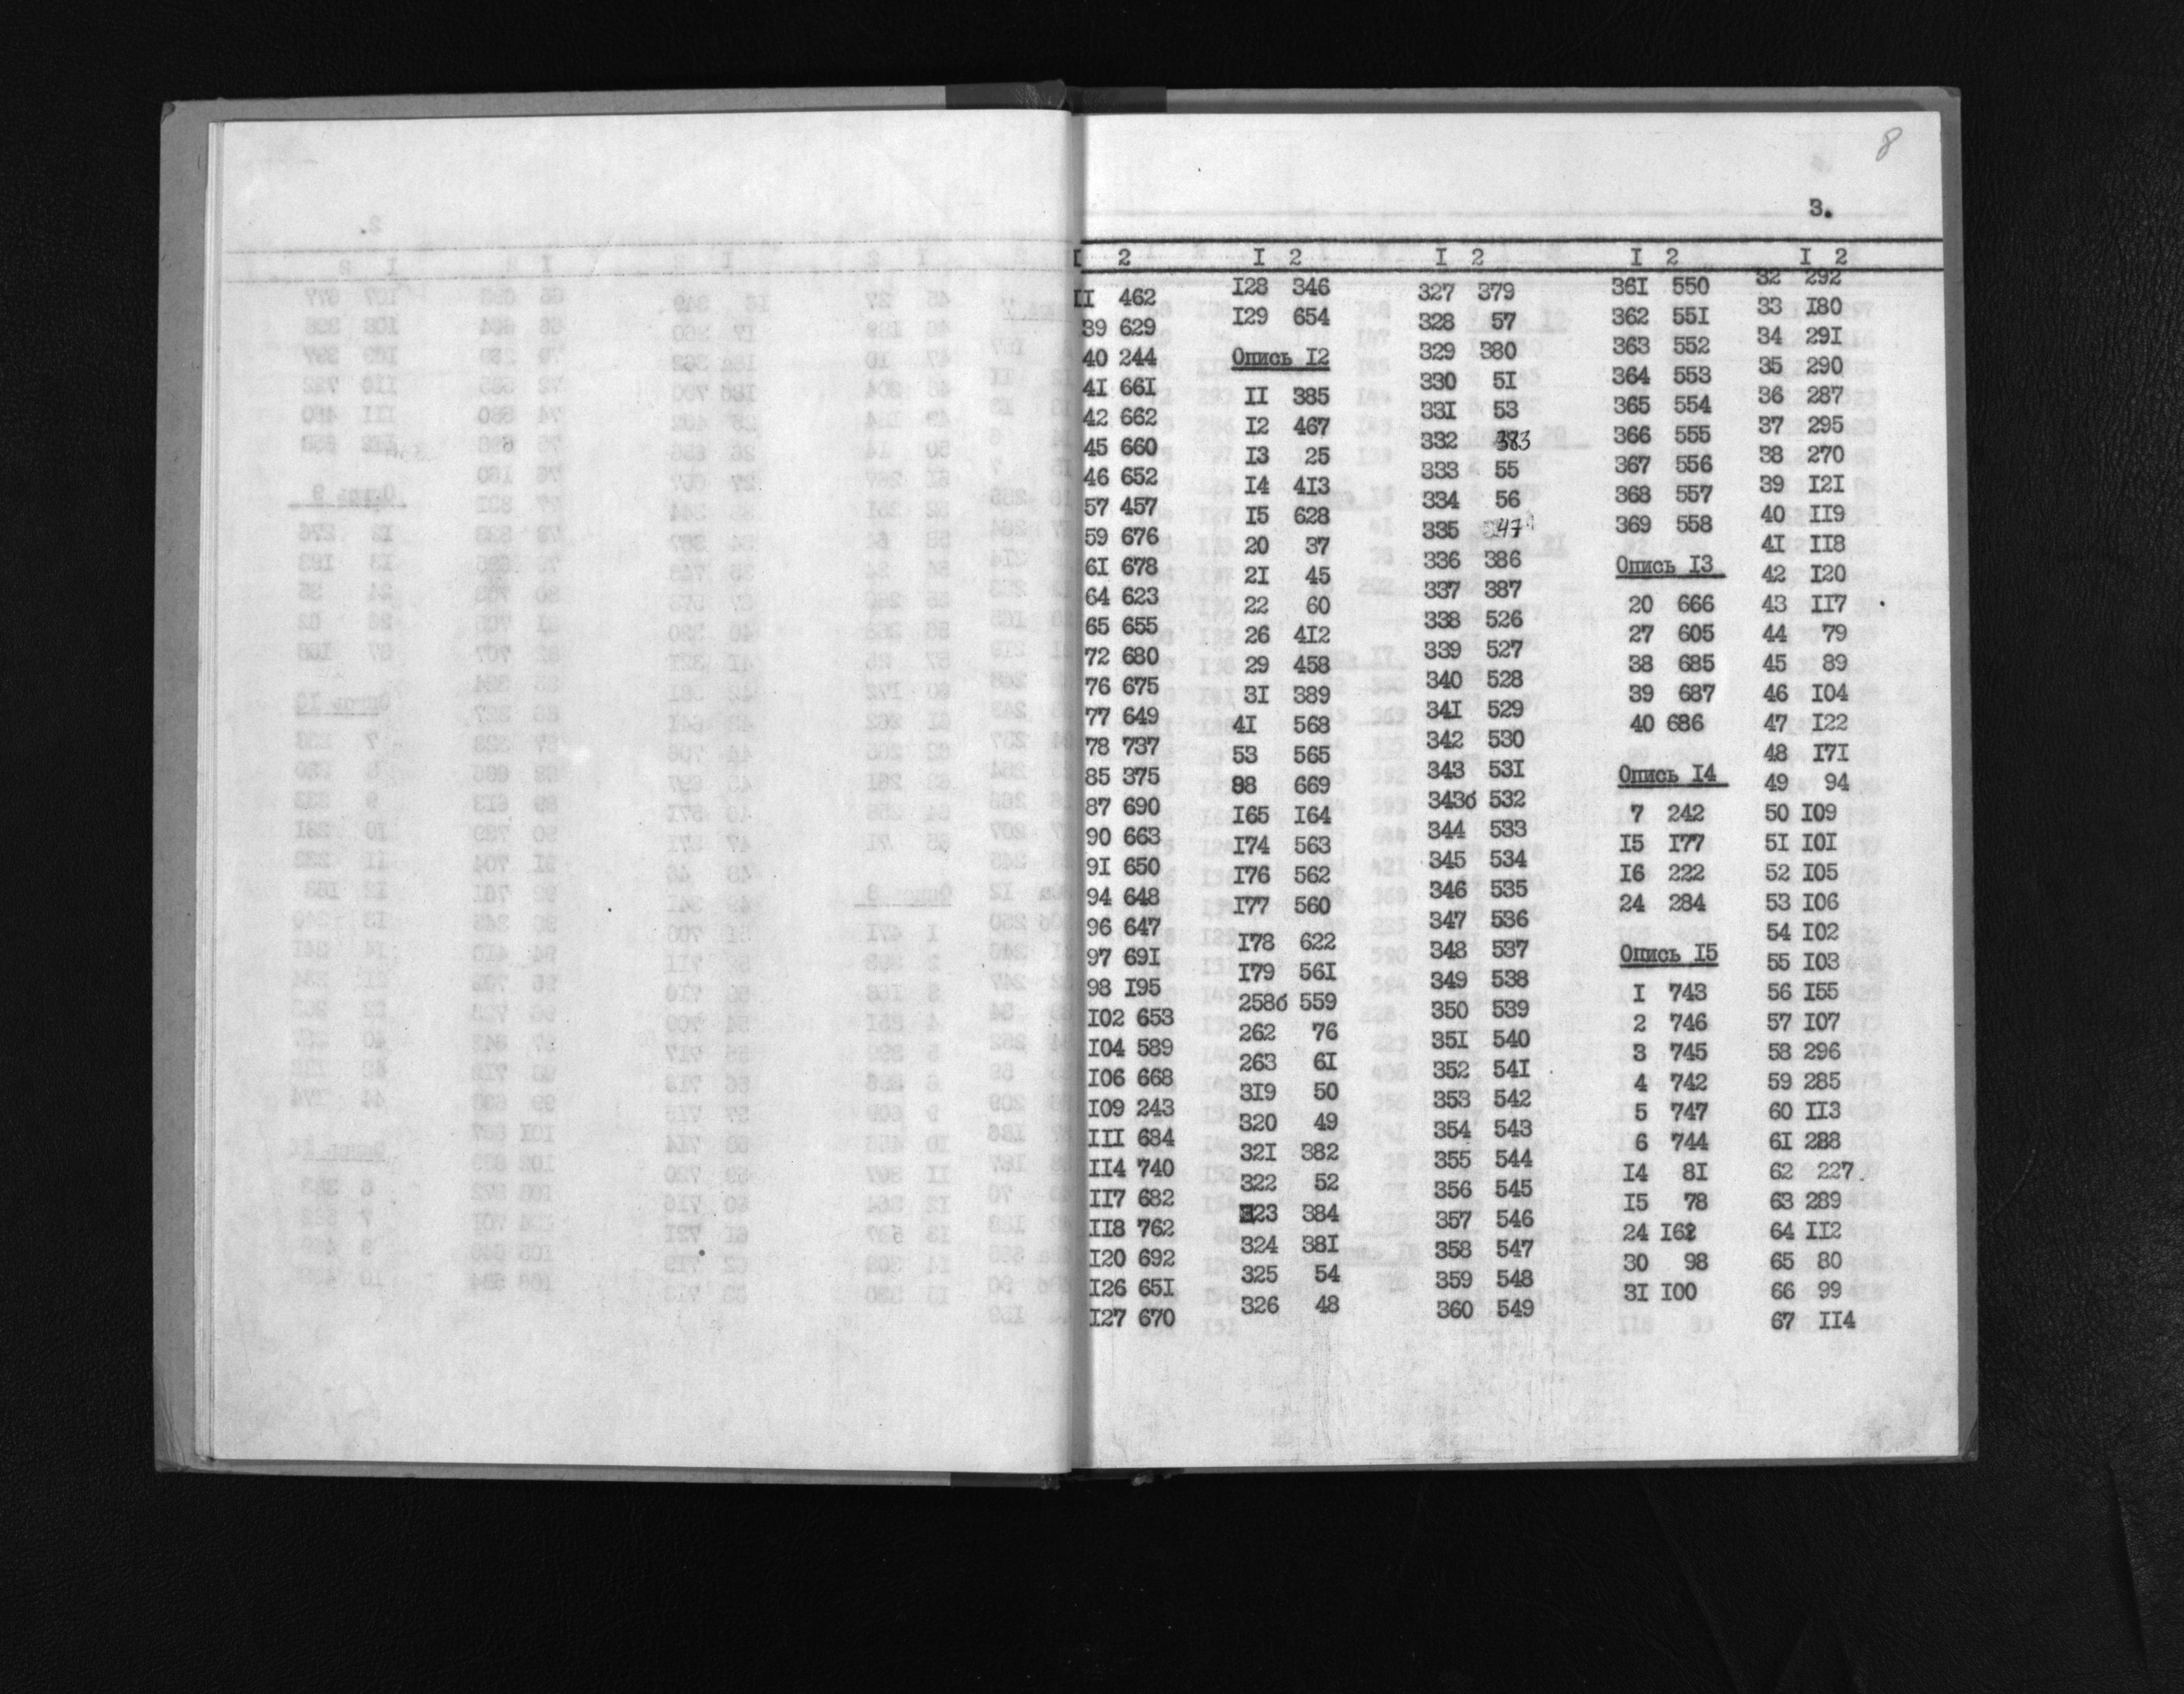 8
3.
I 2
II 462
39 629
40 244
4I 66I
42 662
45 660
46 652
57 457
59 676
6I 678
64 623
65 655
72 680
76 675
77 649
78 737
85 375
87 690
90 663
9I 650
94 648
96 647
97 69I
98 I95
I02 653
I04 589
I06 668
I09 243
III 684
II4 740
II7 682
II8 762
I20 692
I26 65I
I27 670
I 2
I28 346
I29 654
Опись I2
II 385
I2 467
I3 25
I4 4I3
I5 628
20 37
2I 45
22 60
26 4I2
29 458
3I 389
4I 568
53 565
98 669
I65 I64
I74 563
I76 562
I77 560
I78 622
I79 56I
258б 559
262 76
263 6I
3I9 50
320 49
32I 382
322 52
323 384
324 38I
325 54
326 48
I 2
327 379
328 57
329 380
330 5I
33I 53
332 383
333 55
334 56
335 47
336 386
337 387
338 526
339 527
340 528
34I 529
342 530
343 53I
343б 532
344 533
345 534
346 535
347 536
348 537
349 538
350 539
35I 540
352 54I
353 542
354 543
355 544
356 545
357 546
358 547
359 548
360 549
I 2
36I 550
362 55I
363 552
364 553
365 554
366 555
367 556
368 557
369 558
Опись I3
20 666
27 605
38 685
39 687
40 686
Опись I4
7 242
I5 I77
I6 222
24 284
Опись I5
I 743
2 746
3 745
4 742
5 747
6 744
I4 8I
I5 78
24 I62
30 98
3I I00
I 2
32 292
33 I80
34 29I
35 290
36 287
37 295
38 270
39 I2I
40 II9
4I II8
42 I20
43 II7
44 79
45 89
46 I04
47 I22
48 I7I
49 94
50 I09
5I I0I
52 I05
53 I06
54 I02
55 I03
56 I55
57 I07
58 296
59 285
60 II3
6I 288
62 227
63 289
64 II2
65 80
66 99
67 II4